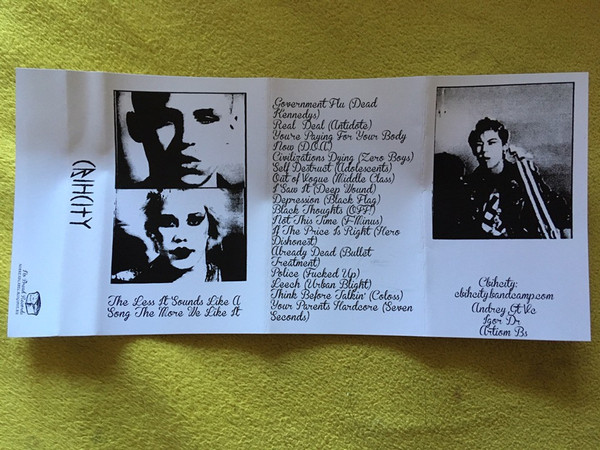 The Less It Sounds Like A
Song The More We Like It
Government Flu (Dead
Kennedys)
Real Deal (Antidote)
Youre Paying For Your Body
Now (D.O.A.)
Civilizations Dying (Zero Boys)
Self Destruct (Adolescents)
Out of Vogue (Middle Class)
I Saw It (Deep Wound)
Depression (Black Flag)
Black Thoughts (OFF!)
Not This Time (F-Minus)
If The Price Is Right (Hero
Dishonest)
Already Dead (Bullet
Treatment)
Police (Fucked Up)
Leech (Urban Blight)
Think Before Talkin' (Coloss)
Your Parents Hardcore (Seven
Seconds)
Cbihcity:
cbihcity.bandcamp.com
Andrey Gt Vc
Igor Dr
Artiom Bs